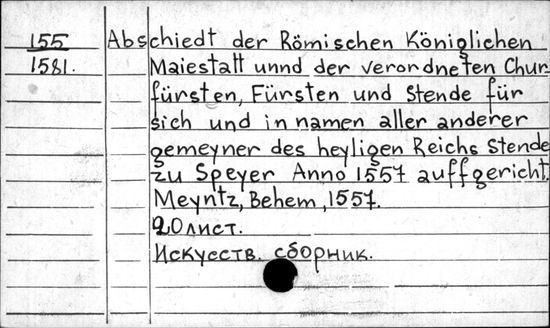 155 Abschiedt der Römischen Königlichen
1581. Maiestatt unnd der verordneten Chur
fürsten, Fürsten und Stende für
sich und in namen aller anderer
gemeyner des heyligen Reichs Stende
zu Speyer Anno 1557 auffgericht.
Meyntz, Behem, 1557.
20 лист.
Искусств. сборник.